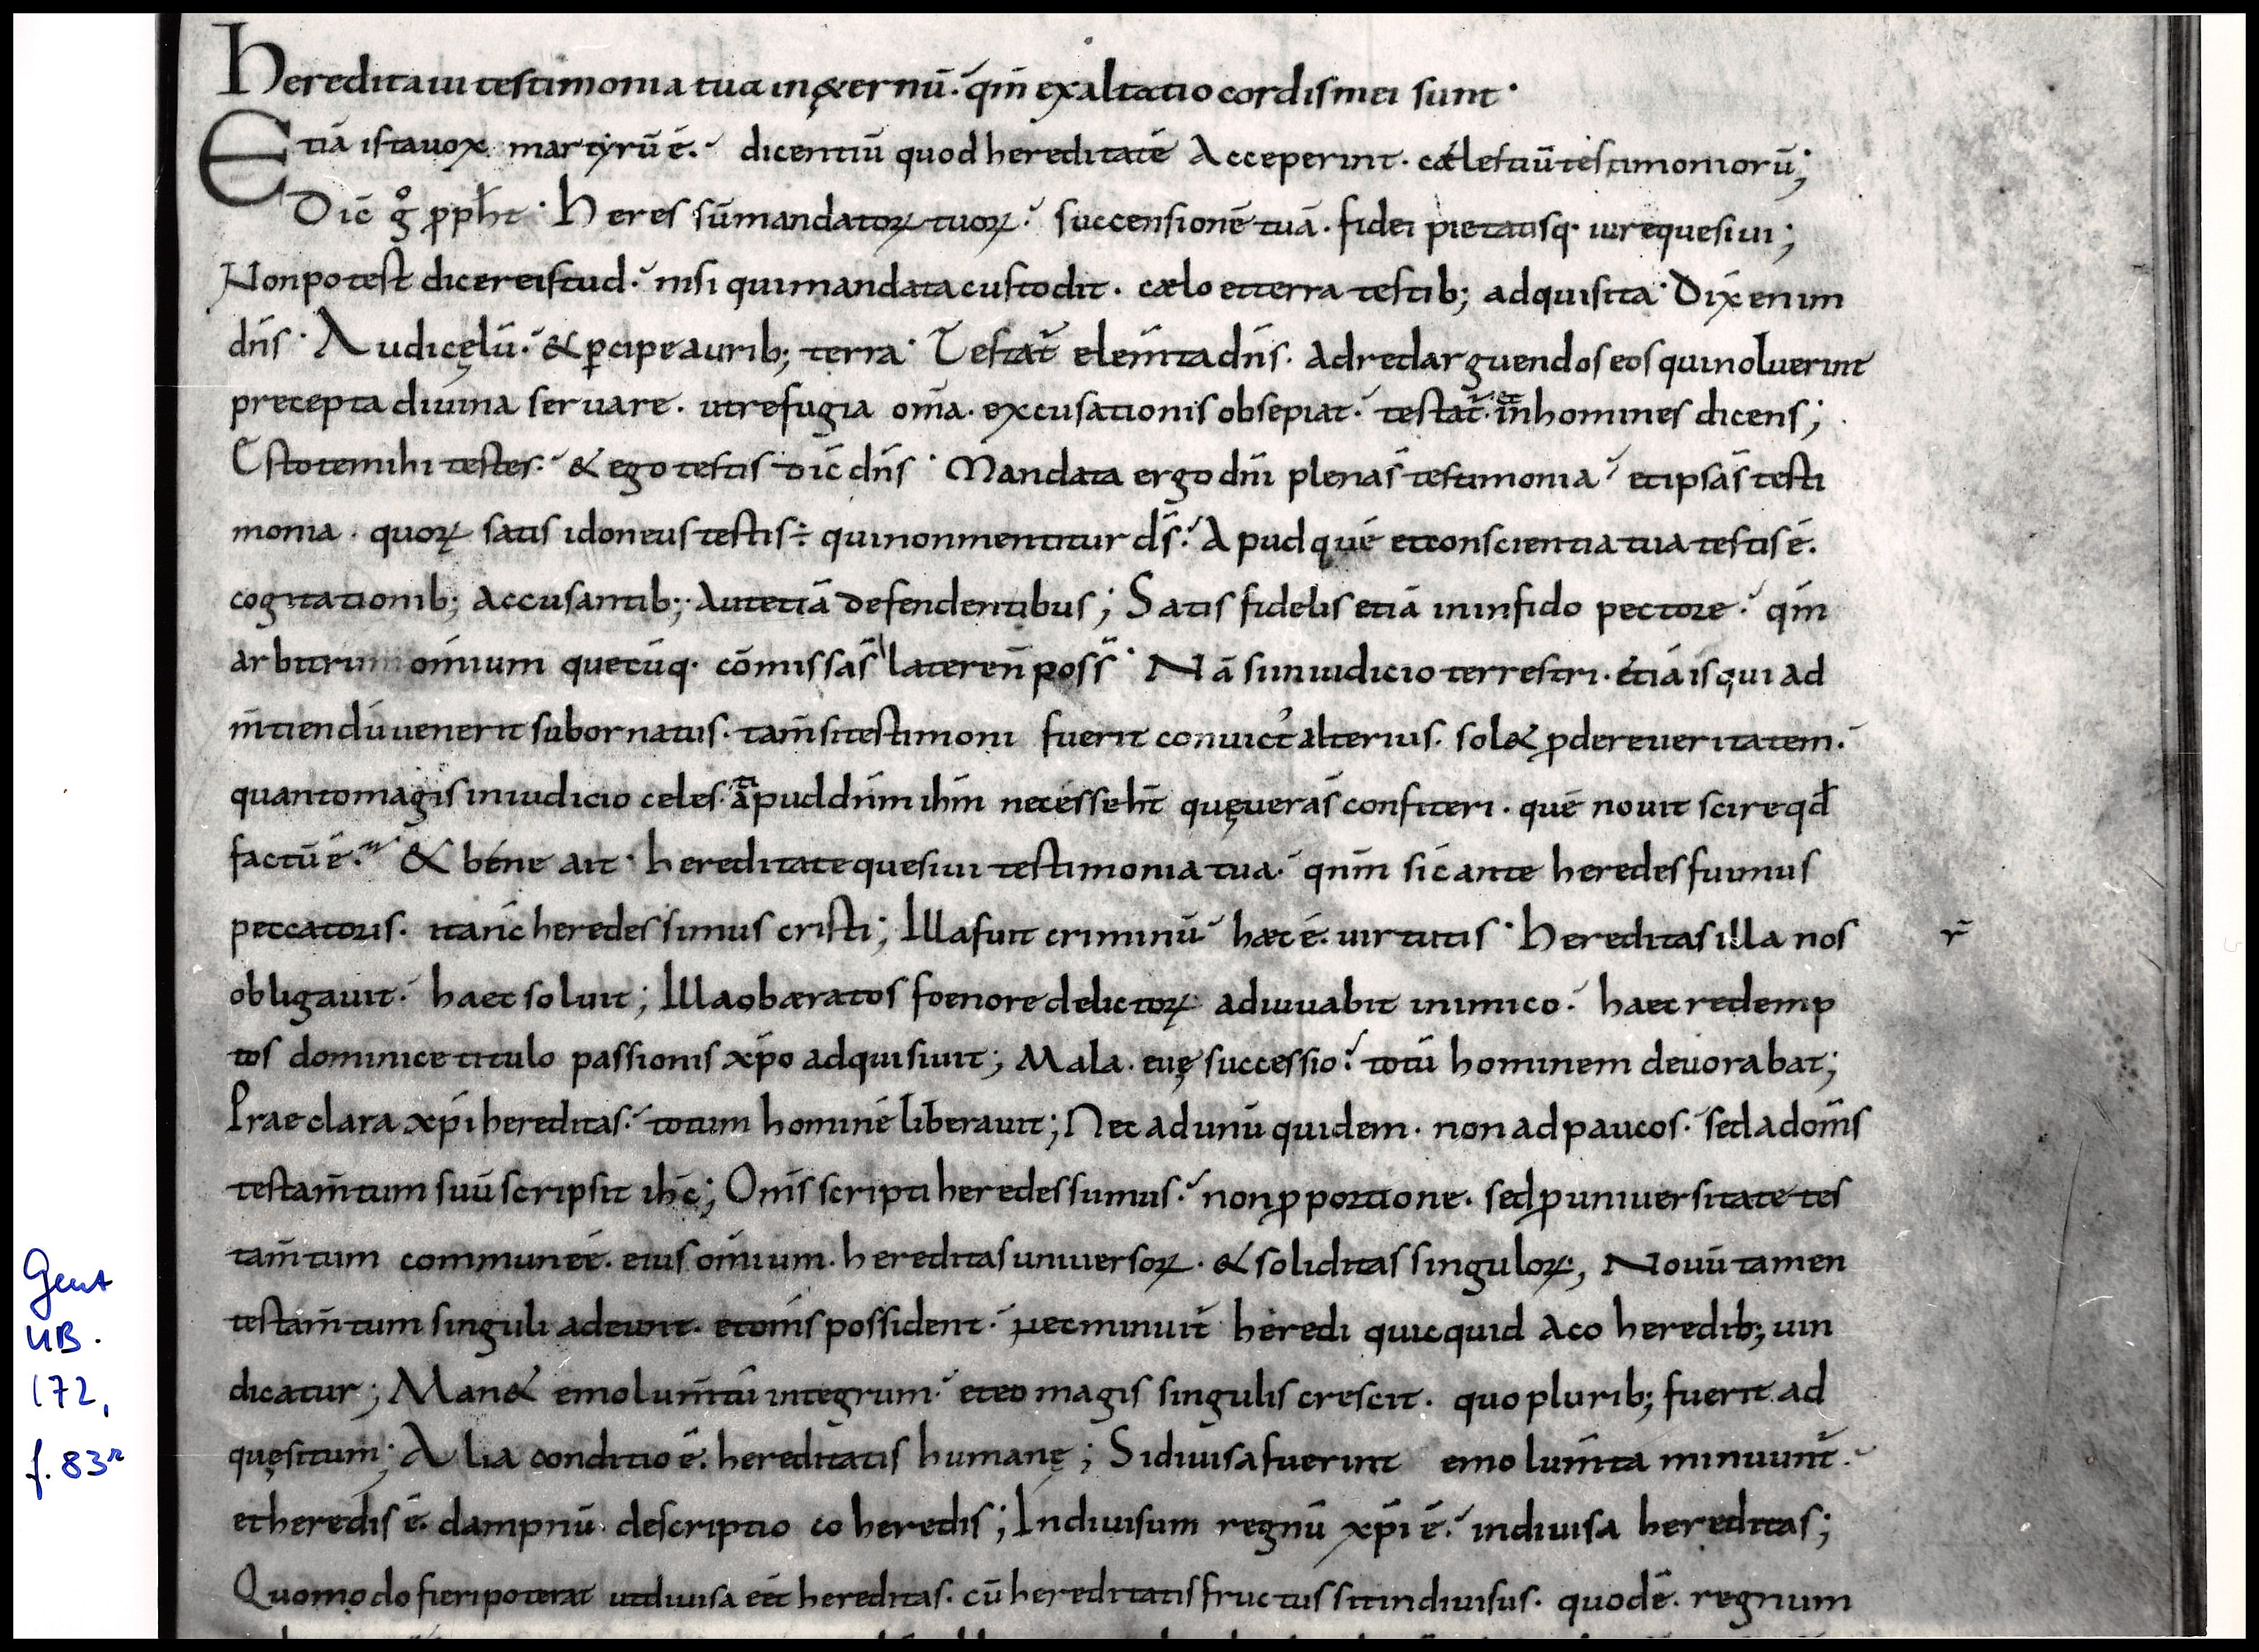 Hereditaui testimonia tua in ę&ernū· qm̄ exaltatio cordis mei sunt·
Etiā ista uox martyrū ē· dicentiū quod hereditatē Acceperint· cælestiū testimoniorū;
Dic̄ gͦ pph̄t· Heres sū mandatoꝝ tuoꝝ· successionē tuā· fidei pietatisq· iure quesiui;
Non potest dicere istud· nisi qui mandata custodit· cælo et terra testib; adquisita· Dix̄ enim
dn̄s· Audi cęlū· & ꝑcipe aurib; terra· Testat̄ elem̄ta dn̄s· ad redarguendos eos qui noluerint
precepta diuina seruare· ut refugia om̄a· excusationis obsepiat· testat̄· et in homines dicens;
Estote mihi testes· & ego testis dic̄ dn̄s· Mandata ergo dn̄i plena s̄ testimonia· et ipsa s̄ testi
monia· quoꝝ satis idoneus testis ÷ qui non mentitur ds̄· Apud quē et conscientia tua testis ē·
cogitationib; accusantib; Aut etiā defendentibus; Satis fidelis etiā in infido pectore· qm̄
arbitrium om̄ium quecūq· cōmissa s̄ latere n̄ poss̄· Nā si in iudicio terrestri· etiā is qui ad
m̄tiendū uenerit subornatus· tam̄ si testimonii fuerit conuict᾽ alterius· sol& ꝓdere ueritatem·
quanto magis in iudicio celesti apud dn̄m ih̄m necesse h̄t quę uera s̄ confiteri· quē nouit scire qd̄
factū ē· & bene ait· hereditate quesiui testimonia tua· qn̄m sic̄ ante heredes fuimus
peccatoris· ita nc̄ heredes simus cristi; Illa fuit criminū· hæc ē· uirtutis· Hereditas illa nos
obligauit· haec soluit; Illa obæratos foenore delictoꝝ adiuuabit inimico· haec redemp
tos dominice titulo passionis xp̄o adquisiuit; Mala· euę successio· totū hominem deuorabat;
Praeclara xp̄i hereditas· totum hominē liberauit; Nec ad unū quidem· non ad paucos· sed ad om̄s
testam̄tum suū scripsit ih̄c; Om̄s scripti heredes sumus· non ꝓ portione· sed ꝓ uniuersitate tes
tam̄tum commune ē· eius om̄ium· hereditas uniuersoꝝ· & soliditas singuloꝝ; Nouū tamen
testam̄tum singuli adeunt· et om̄s possident· nec minuit̄ heredi quicquid A co heredib; uin
dicatur; Man& emolum̄tū integrum· et eo magis singulis crescit· quo plurib; fuerit ad
quęsitum; Alia conditio ē· hereditatis humanę; Si diuisa fuerint emolum̄ta minuunt̄·
et heredis ē· dampnū· descriptio co heredis; Indiuisum regnū xp̄i ē· indiuisa hereditas;
Quomodo fieri poterat ut diuisa eēt hereditas· cū hereditatis fructus sit indiuisus· quod ē· regnum
r̄
Gent
UB.
172,
f. 83r